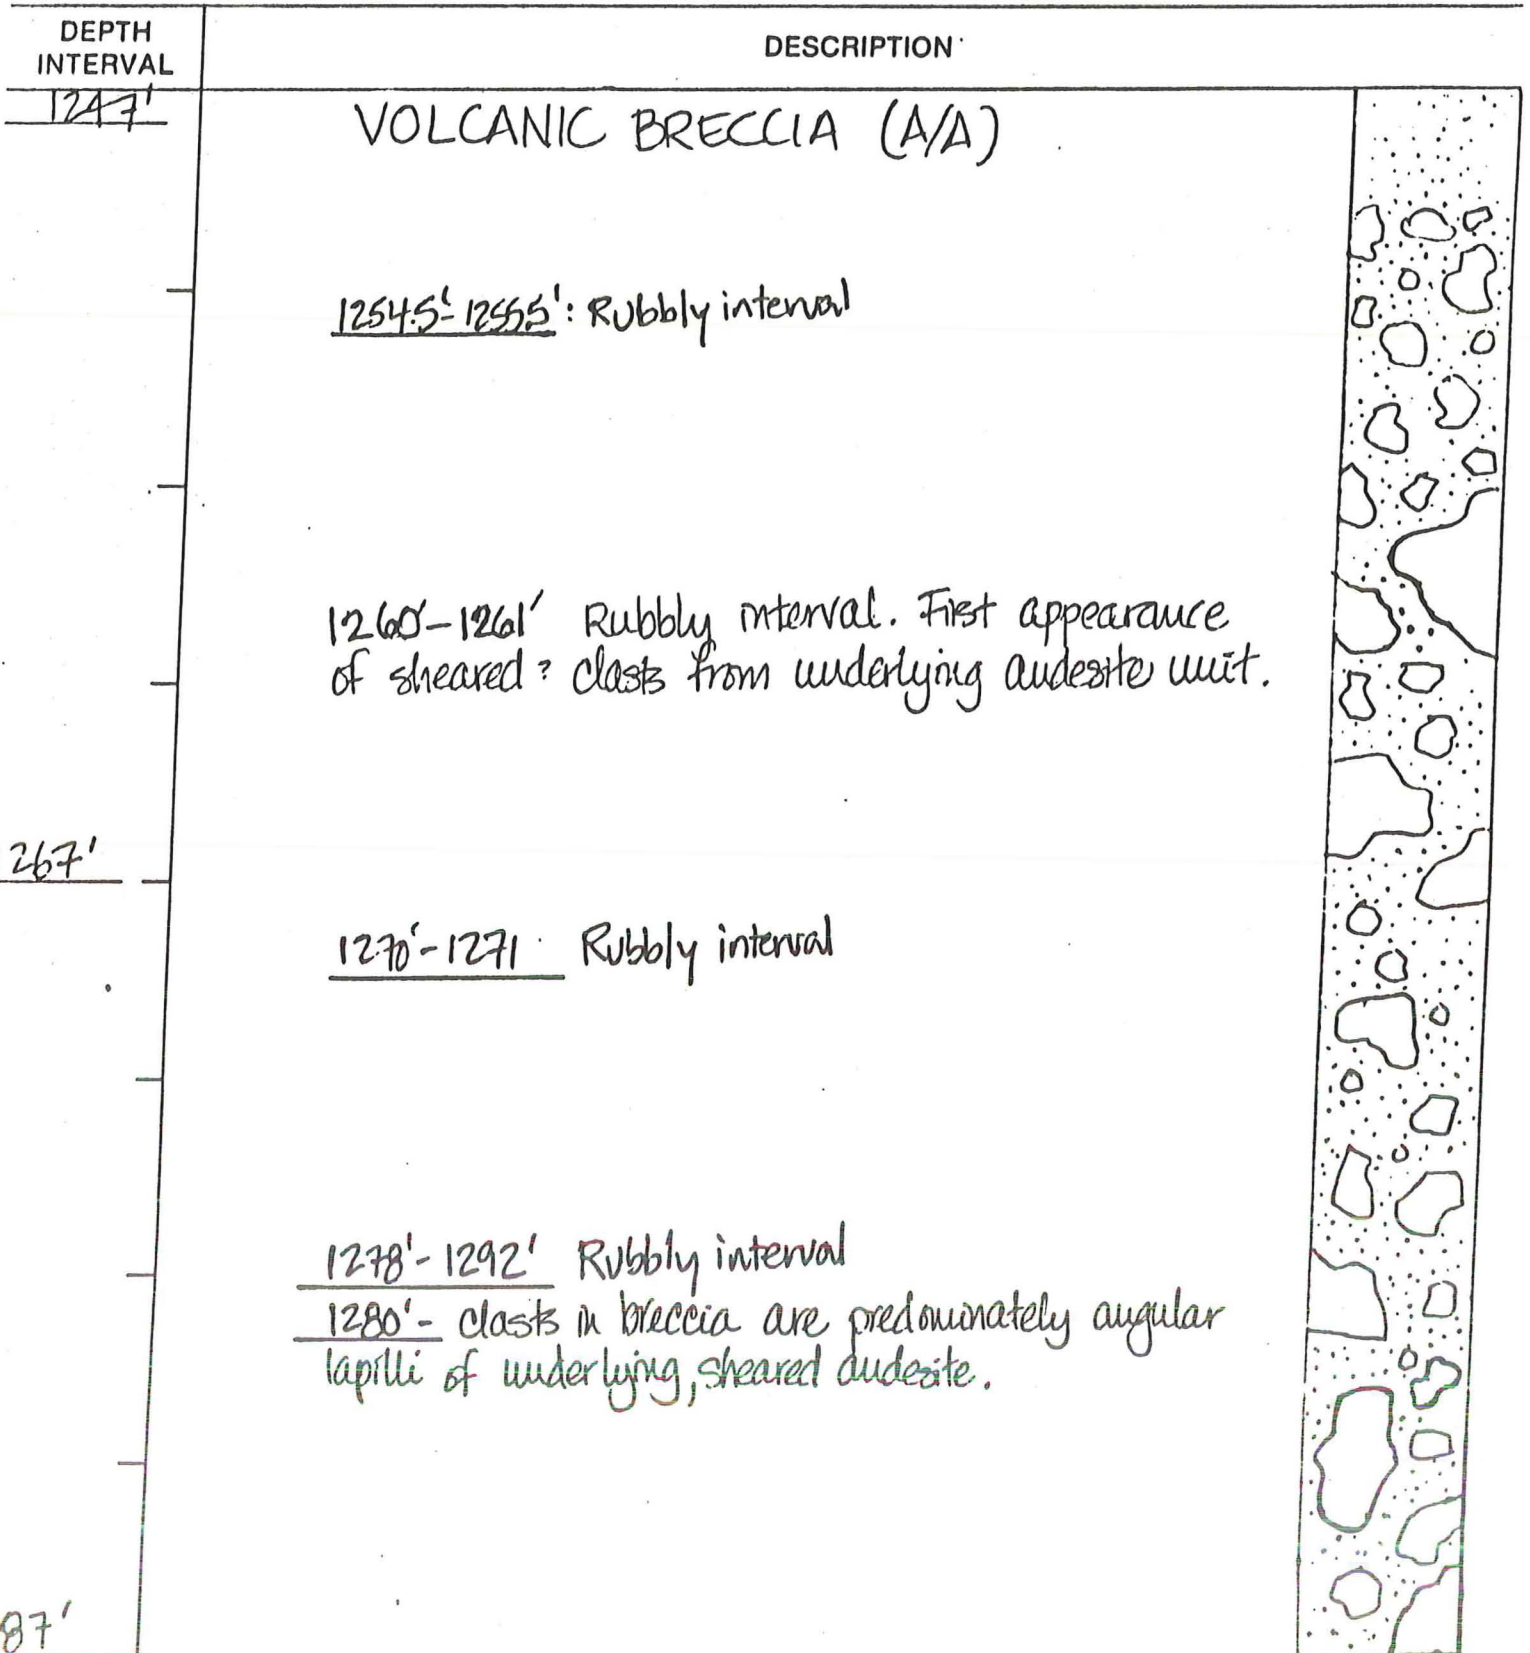 DEPTH
INTERVAL
DESCRIPTION
1247'
VOLCANIC BRECCIA (A/A)
1254.5'-1255.5': Rubbly interval
1260'-1261' Rubbly interval. First appearance
of sheared? clasts from underlying andesite unit.
267'
1270'-1271 Rubbly interval
1278'-1292' Rubbly interval
1280'- clasts in breccia are predominately angular
lapilli of underlying, sheared andesite.
87'